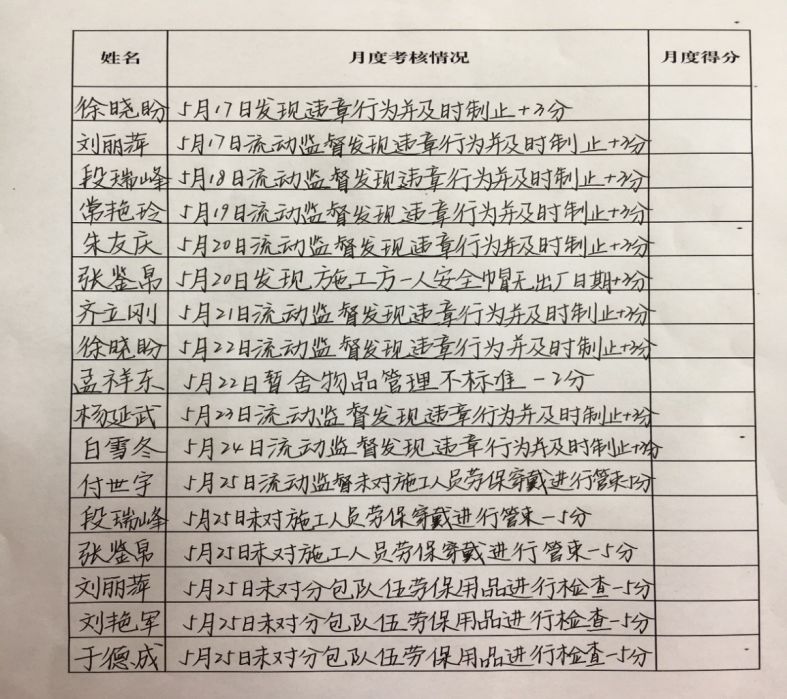 姓名 月度考核情况 月度得分
徐晓盼 5月17日发现违章行为并及时制止+3分
刘丽萍 5月17日流动监督发现违章行为并及时制止+3分
段瑞峰 5月18日流动监督发现违章行为并及时制止+3分
常艳玲 5月19日流动监督发现违章行为并及时制止+3分
朱友庆 5月20日流动监督发现违章行为并及时制止+3分
张鉴帛 5月20日发现施工方一人安全帽无出厂日期+3分
齐立刚 5月21日流动监督发现违章行为并及时制止+3分
徐晓盼 5月22日流动监督发现违章行为并及时制止+3分
孟祥东 5月22日暂舍物品管理不标准-2分
杨延武 5月23日流动监督发现违章行为并及时制止+3分
白雪冬 5月24日流动监督发现违章行为并及时制止+3分
付世宇 5月25日流动监督未对施工人员劳保穿戴进行管束-5分
段瑞峰 5月25日未对施工人员劳保穿戴进行管束-5分
张鉴帛 5月25日未对施工人员劳保穿戴进行管束-5分
刘丽萍 5月25日未对分包队伍劳保用品进行检查-5分
刘艳军 5月25日未对分包队伍劳保用品进行检查-5分
于德成 5月25日未对分包队伍劳保用品进行检查-5分